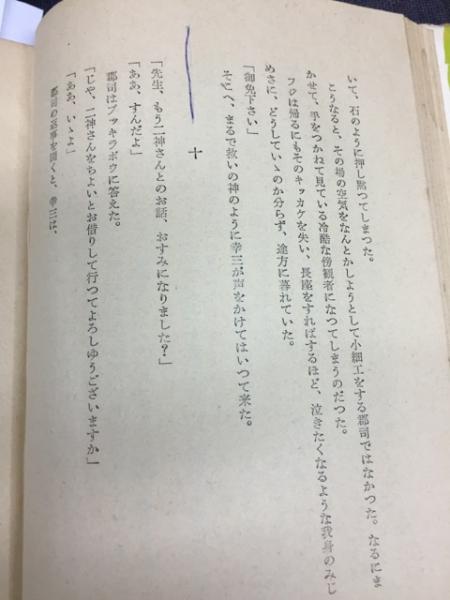 いて、石のように押し黙つてしまつた。
こうなると、その場の空気をなんとかしようとして小細工をする郡司ではなかつた。なるにま
かせて、手をつかねて見ている冷酷な傍観者になつてしまうのだつた。
フジは帰るにもそのキッカケを失い、長座をすればするほど、泣きたくなるような我身のみじ
めさに、どうしていゝのか分らず、途方に暮れていた。
「御免下さい」
そこへ、まるで救いの神のように幸三が声をかけてはいつて来た。
十
「先生、もう二神さんとのお話、おすみになりました?」
「ああ、すんだよ」
郡司はブッキラボウに答えた。
「じや、二神さんをちよいとお借りして行つてよろしゆうございますか」
「ああ、いゝよ」
郡司の返事を聞くと、幸三は、